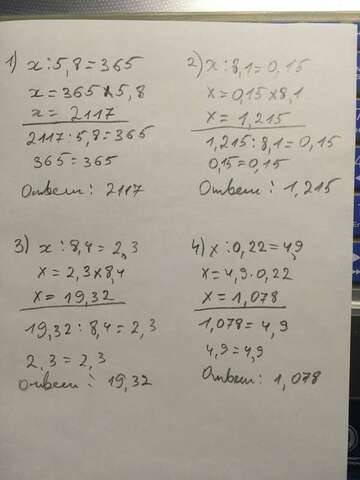 1) x : 5,8 = 365
x = 365 × 5,8
x = 2117
2117 : 5,8 = 365
365 = 365
Ответ: 2117
2) x : 8,1 = 0,15
x = 0,15 × 8,1
x = 1,215
1,215 : 8,1 = 0,15
0,15 = 0,15
Ответ: 1,215
3) x : 8,4 = 2,3
x = 2,3 × 8,4
x = 19,32
19,32 : 8,4 = 2,3
2,3 = 2,3
Ответ: 19,32
4) x : 0,22 = 4,9
x = 4,9 · 0,22
x = 1,078
1,078 = 4,9
4,9 = 4,9
Ответ: 1,078